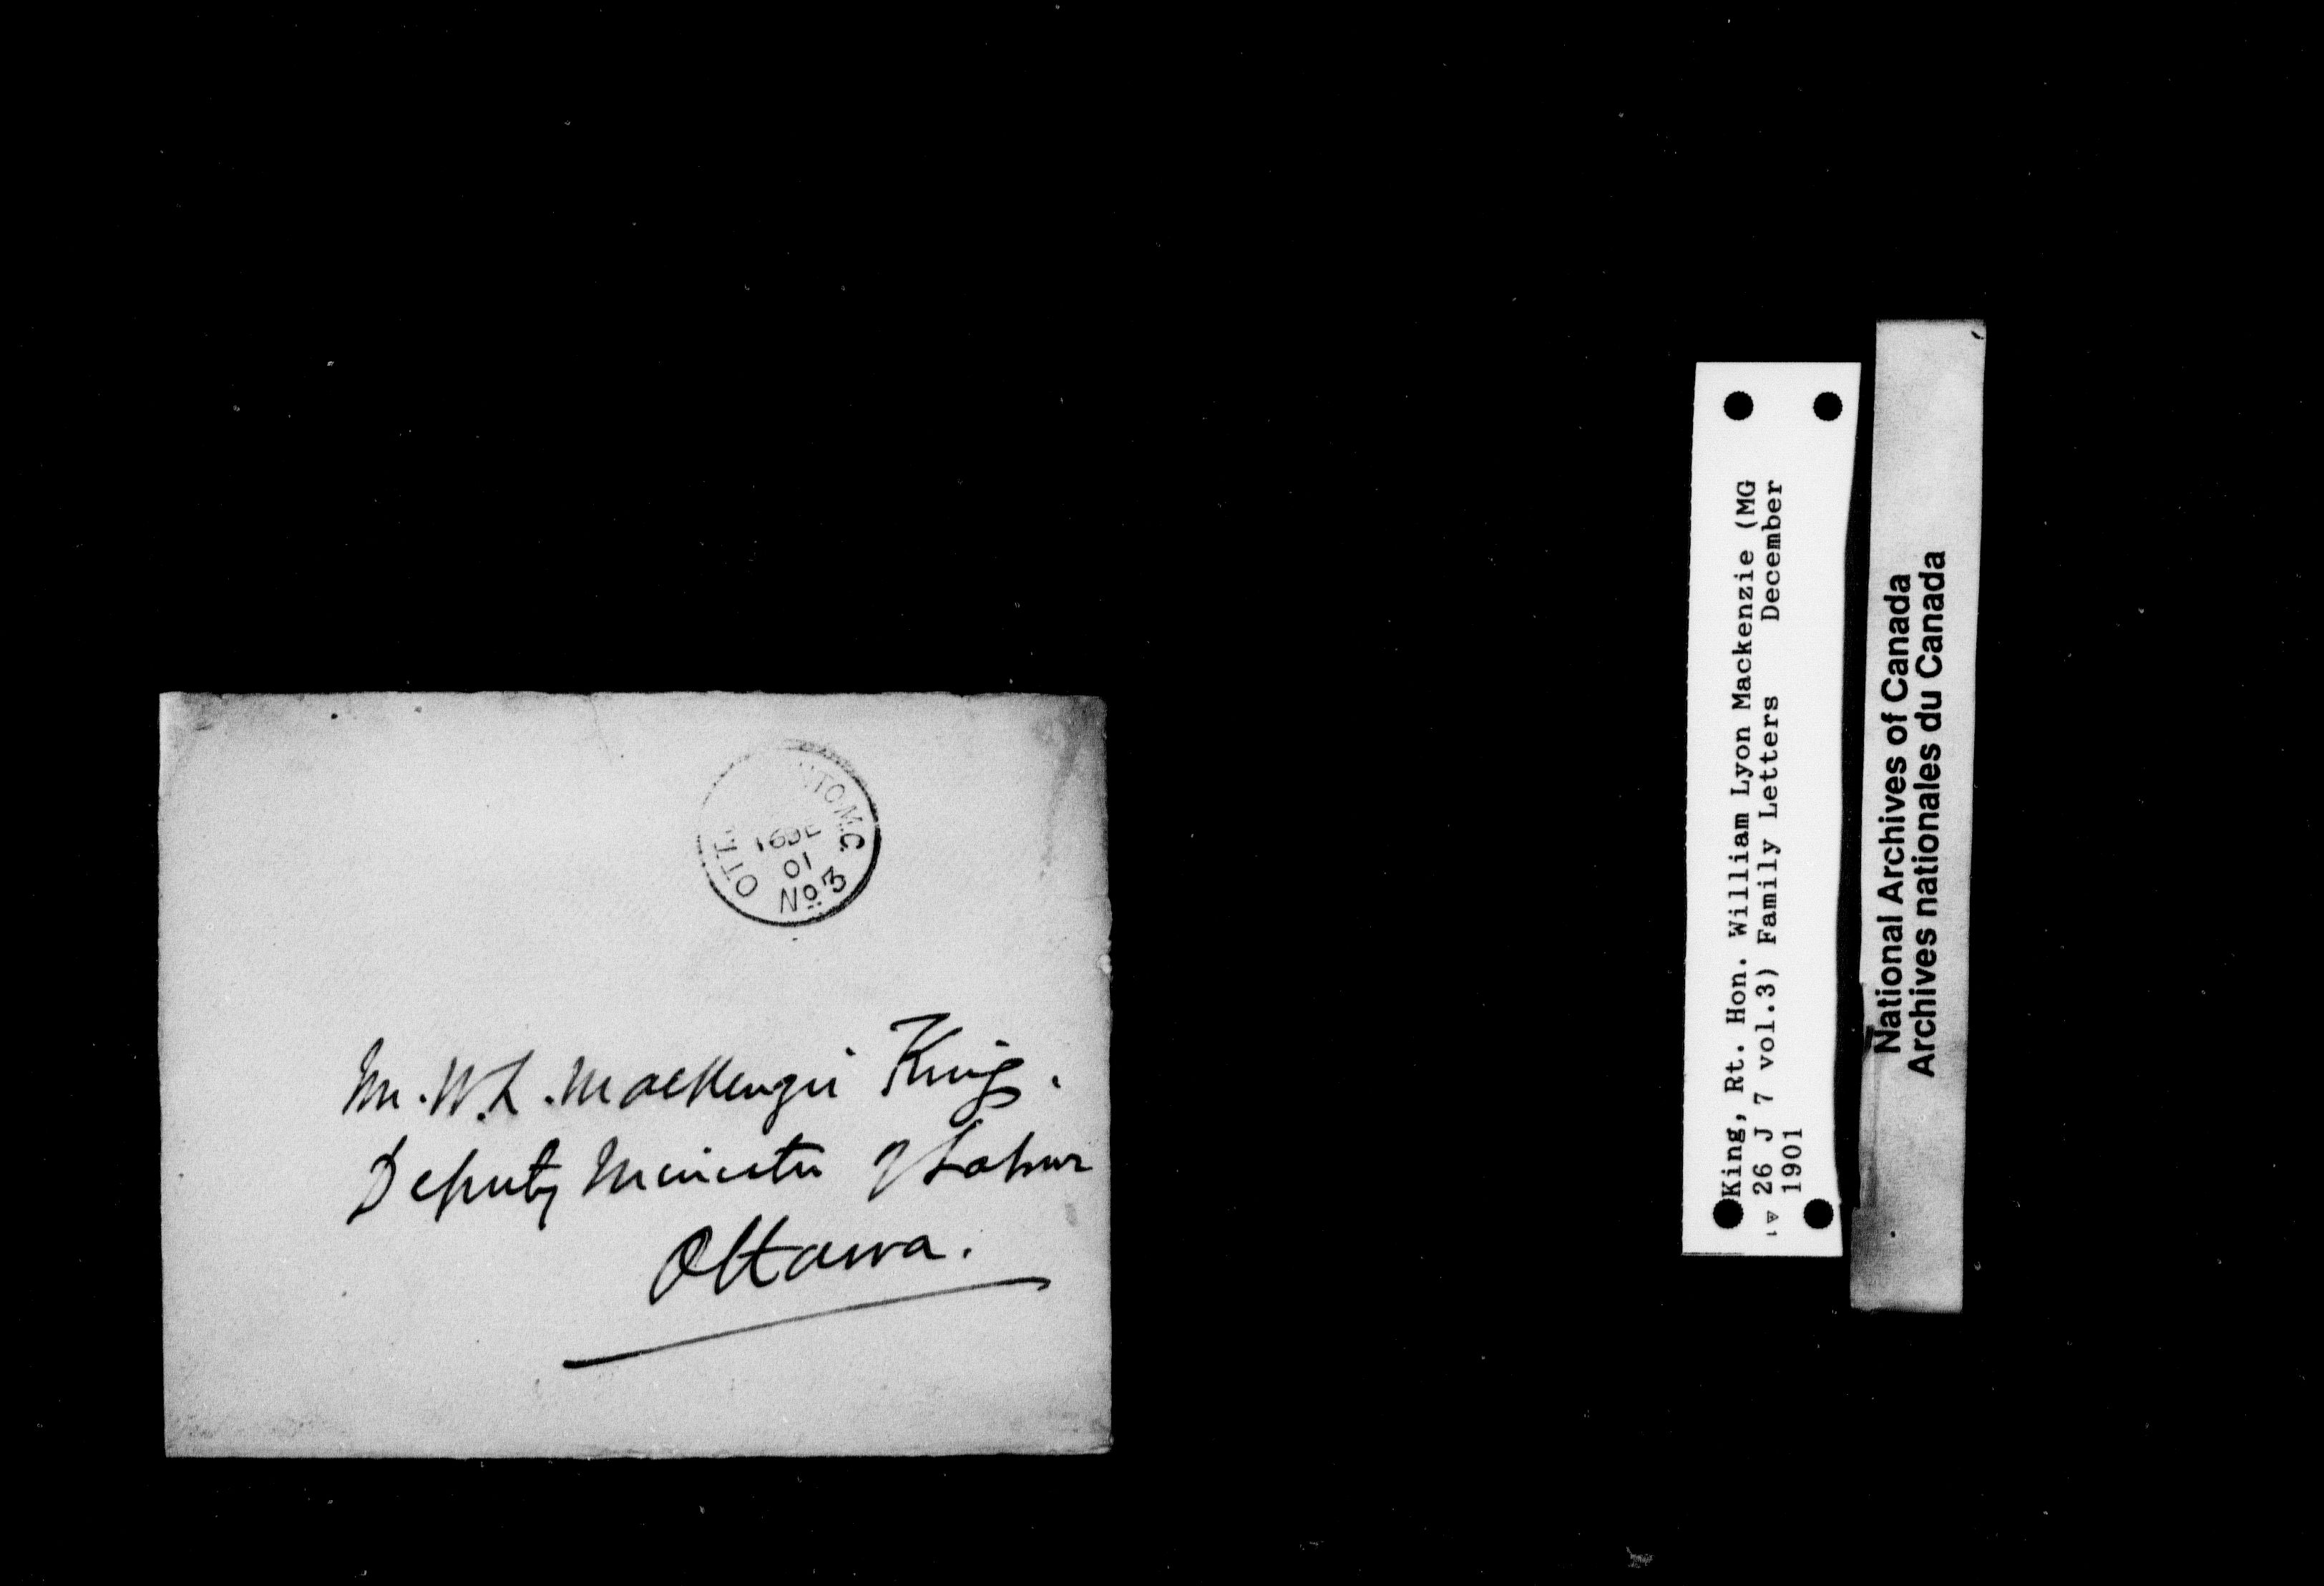 OTT
TO.M.C.
16 DE
01
No 3
Mr. W. L. MacKenzie King.
Deputy Minister of Labour
Ottawa.
King, Rt. Hon. William Lyon Mackenzie (MG
26 J 7 vol.3) Family Letters December
1901
National Archives of Canada
Archives nationales du Canada